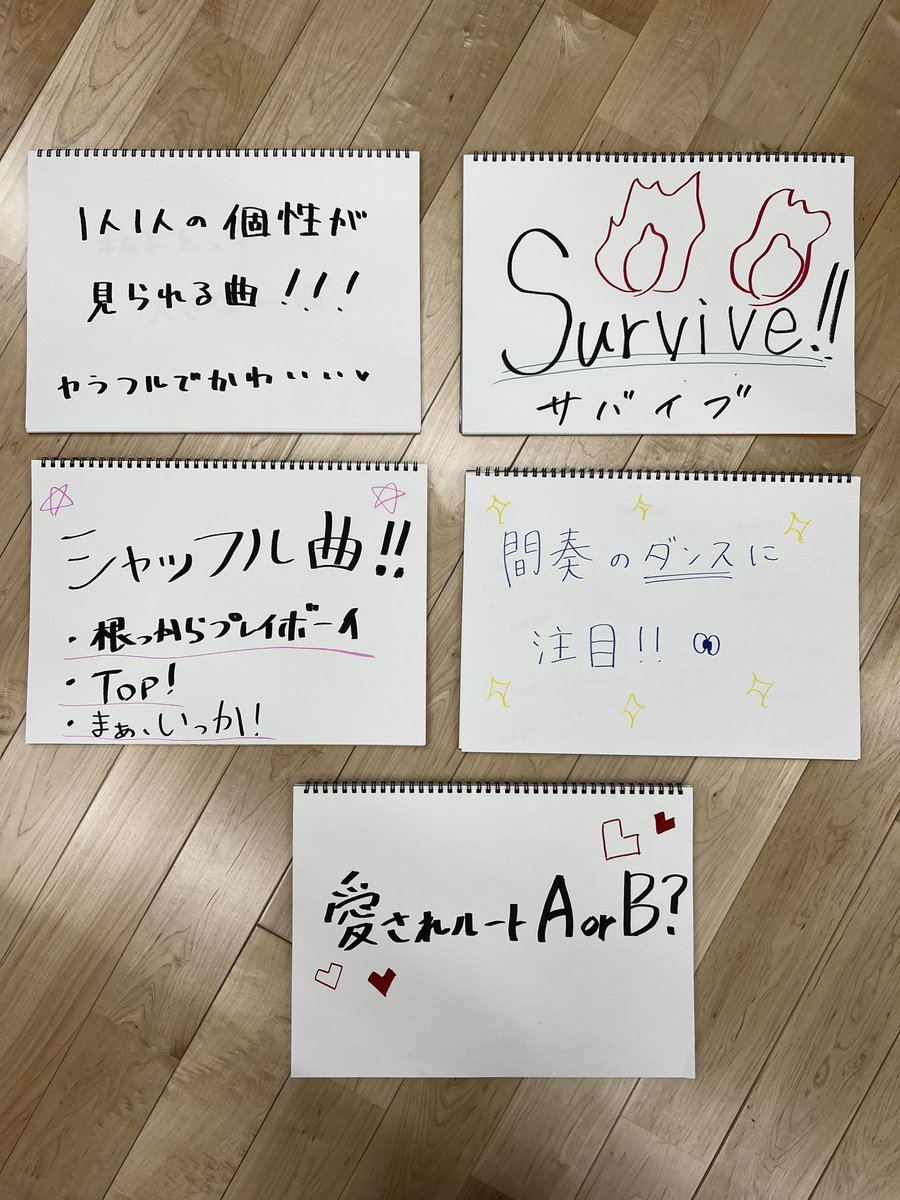 1人1人の個性が
見られる曲!!!
カラフルでかわいいい♥
Survive!!
サバイブ
シャッフル曲!!
・根っからプレイボーイ
・TOP!
・まぁ、いっか!
間奏のダンスに
注目!!
愛されルートAorB?